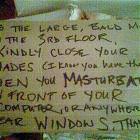 THE LARGE, BALD M
THE 3RD FLOOR,
KINDLY CLOSE YOUR
HADES (I KNOW YOU HAVE TH
EN YOU MASTURBAT
N FRONT OF YOUR
COMPUTER, OR ANYWHER
EAR WINDOWS. TH